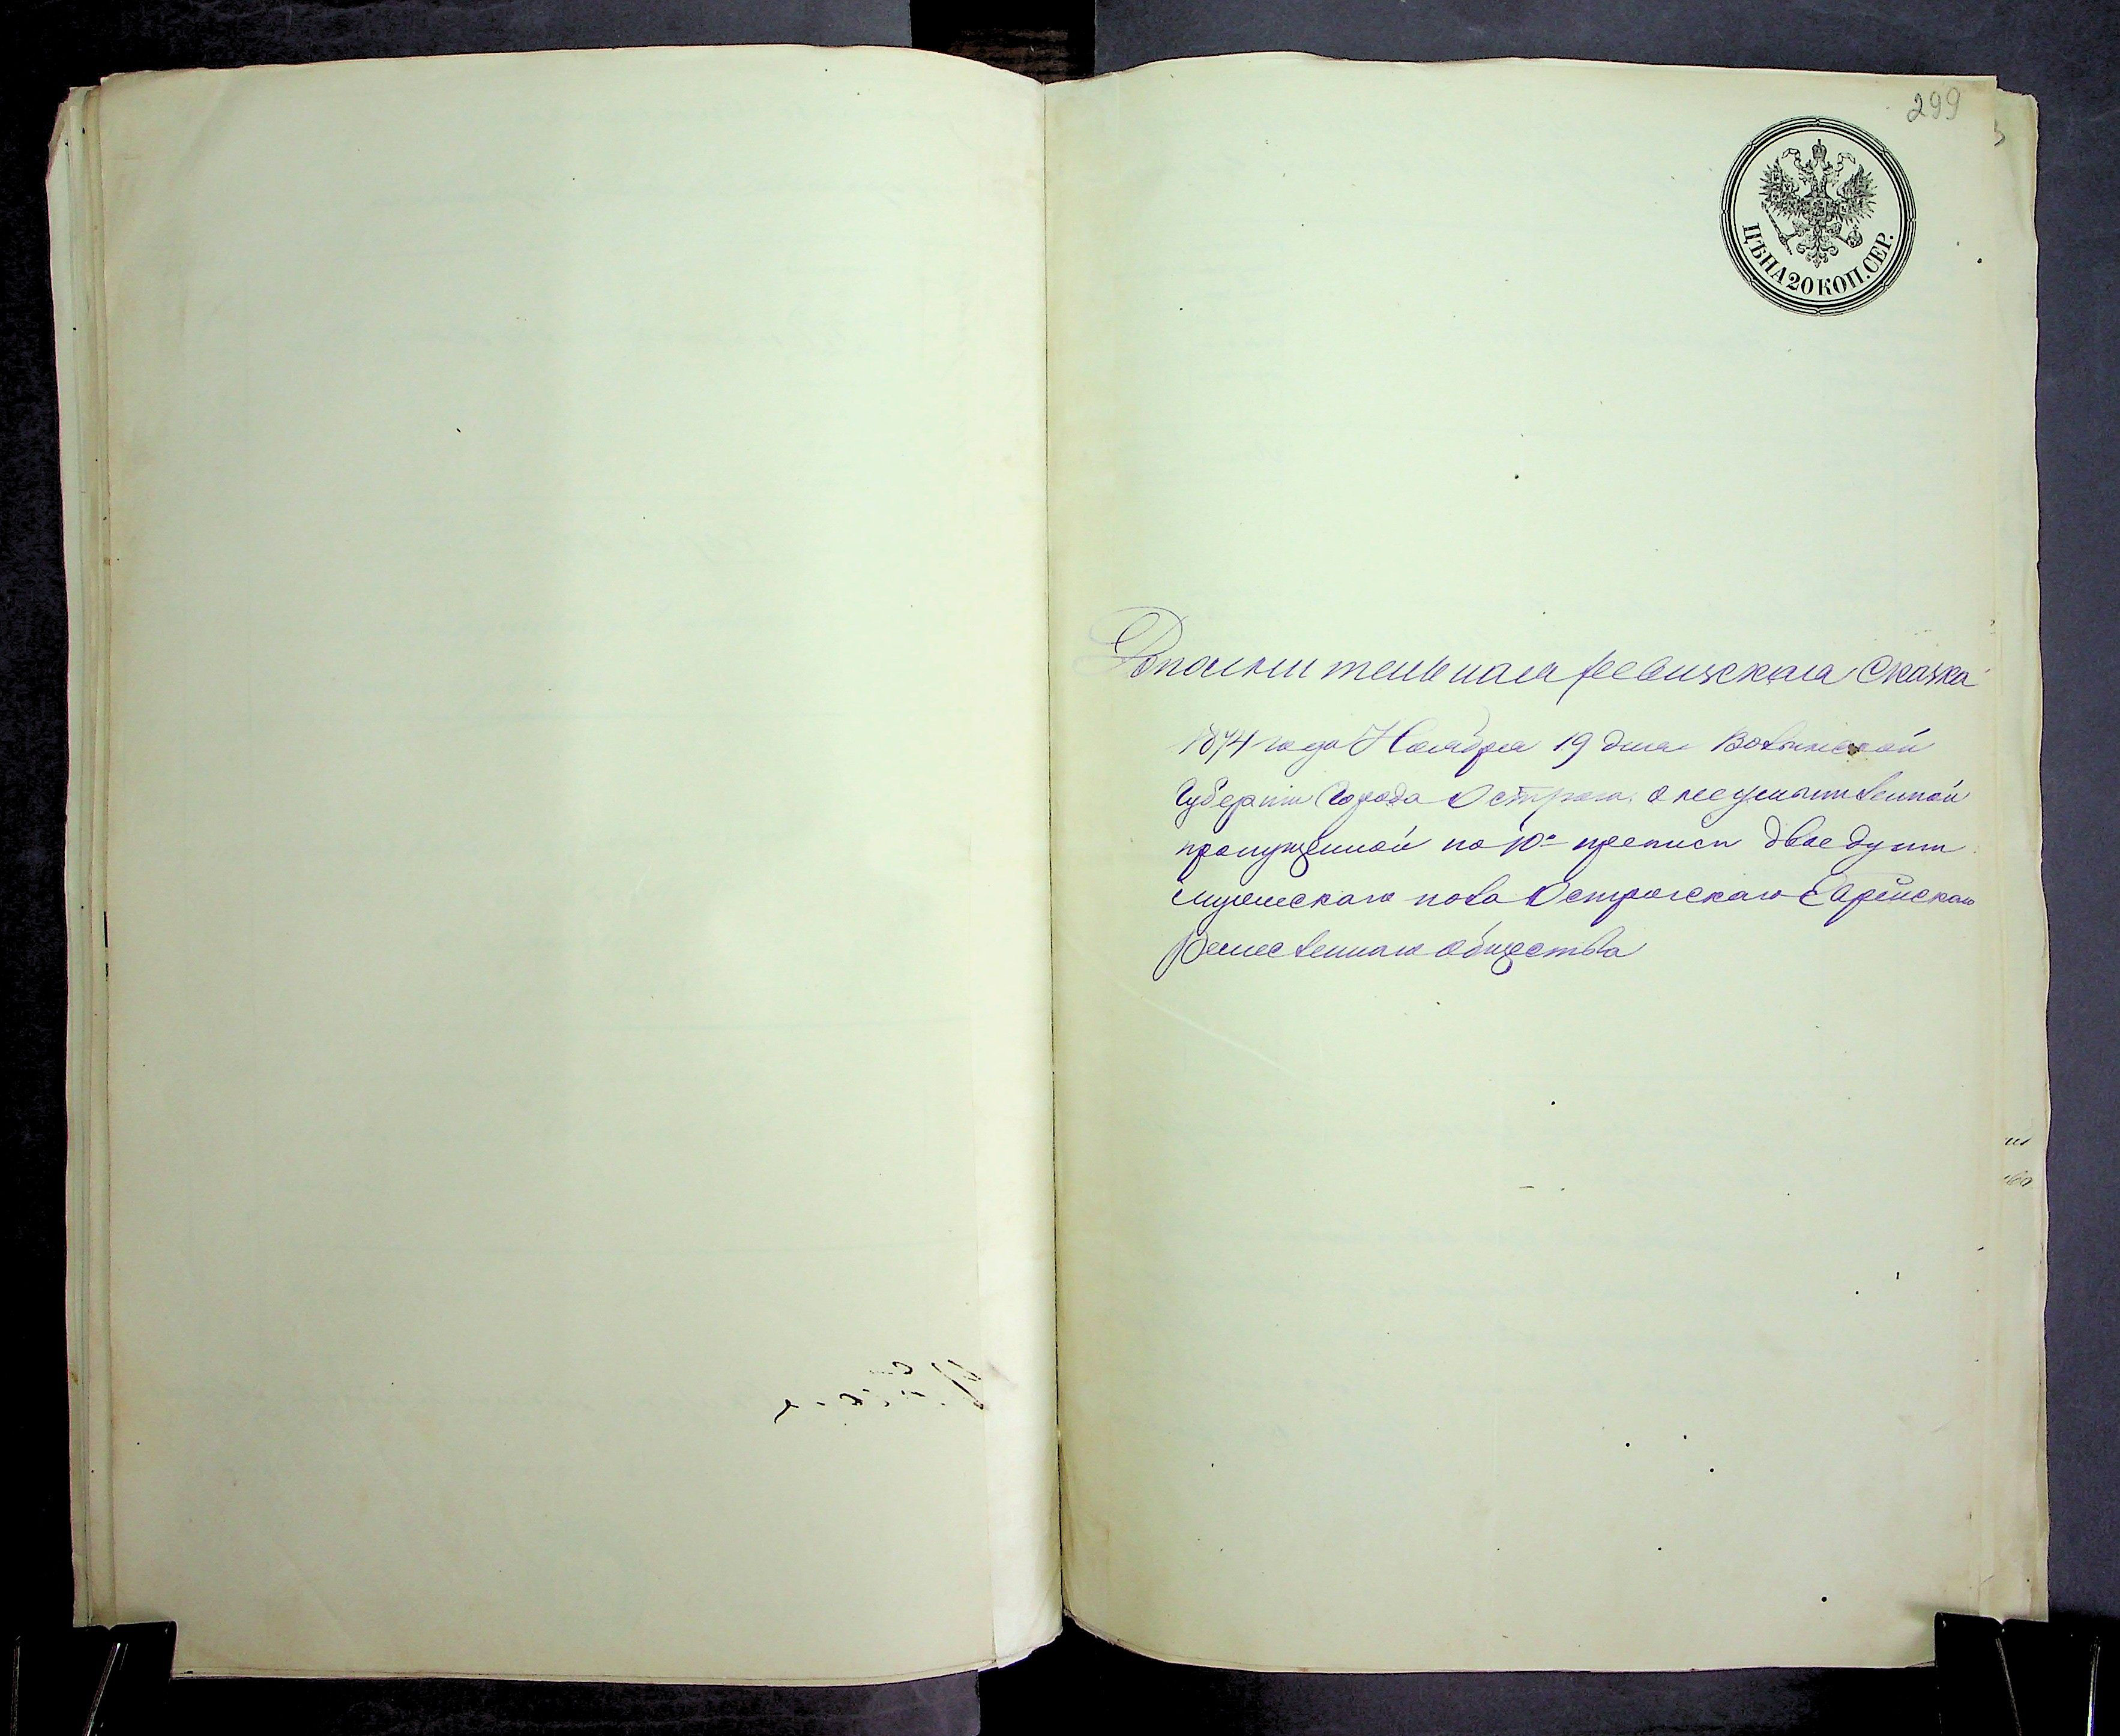 299
ЦѢНА 20 КОП. СЕР.
Дополнительная ревизская Сказка
1874 года Ноября 19 дня Волынской
Губернии Города Острога о неумышленной
пропущенной по 10й преписи двое душ
мужескаго пола Острогскаго Еврейскаго
Ремесленнаго общества